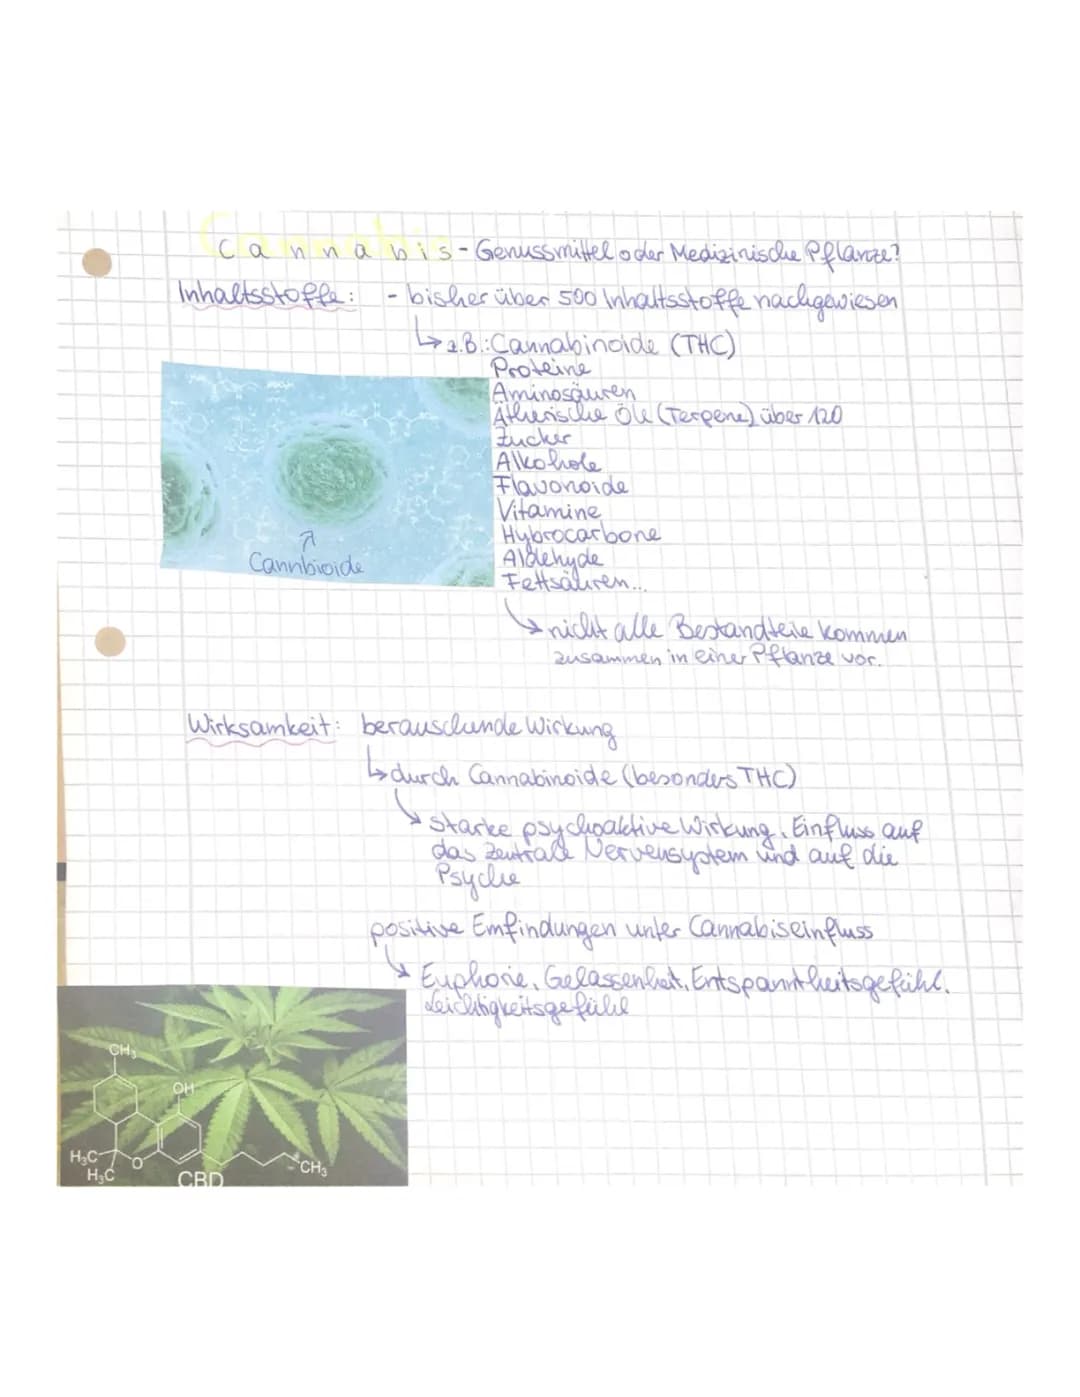 Cannabis - Genussmittel oder Medizinische Pflanze?
Inhaltsstoffe: - bisher über 500 Inhaltsstoffe nachgewiesen
↳ z.B.: Cannabinoide (THC)
Proteine
Aminosäuren
Ätherische Öle (Terpene) über 120
Zucker
Alkohole
Flavonoide
Vitamine
Hybrocarbone
Aldehyde
Fettsäuren...
Cannbioide
↳ nicht alle Bestandteile kommen
zusammen in einer Pflanze vor.
Wirksamkeit: berauschende Wirkung
↳ durch Cannabinoide (besonders THC)
↳ starke psychoaktive Wirkung, Einfluss auf
das zentrale Nervensystem und auf die
Psyche
positive Emfindungen unter Cannabiseinfluss
↳ Euphorie, Gelassenheit, Entspanntheitsgefühl,
Leichtigkeitsgefühl
CH₃
OH
H₃C
O
H₃C
CH₃
CBD